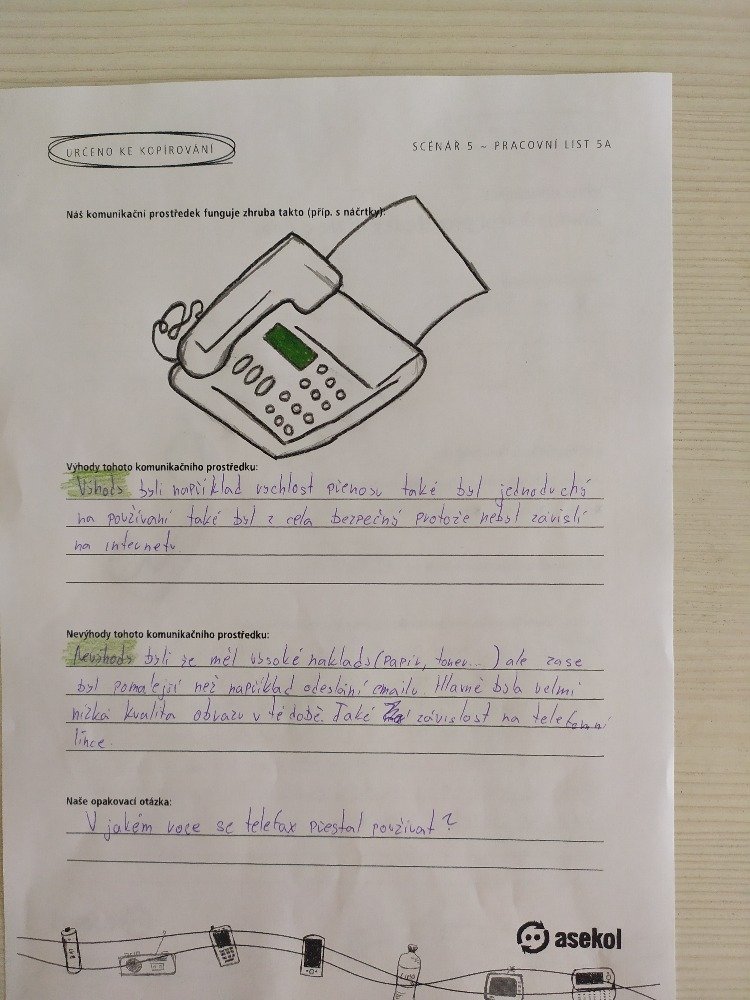 URČENO KE KOPÍROVÁNÍ
SCÉNÁŘ 5 ~ PRACOVNÍ LIST 5A
Náš komunikační prostředek funguje zhruba takto (příp. s náčrtky):
Výhody tohoto komunikačního prostředku:
Výhody byli například rychlost přenosu také byl jednoduchý
na používaní také byl z cela bezpečný protože nebyl závislí
na internetu
Nevýhody tohoto komunikačního prostředku:
Nevýhody byli že měl vysoké naklady (papír, toner...) ale zase
byl pomalejší než například odeslání emailu. Hlavně byla velmi
nízká kvalita obrazu v té době. Také závislost na telefonní
lince.
Naše opakovací otázka:
V jakém roce se telefax přestal používat?
asekol